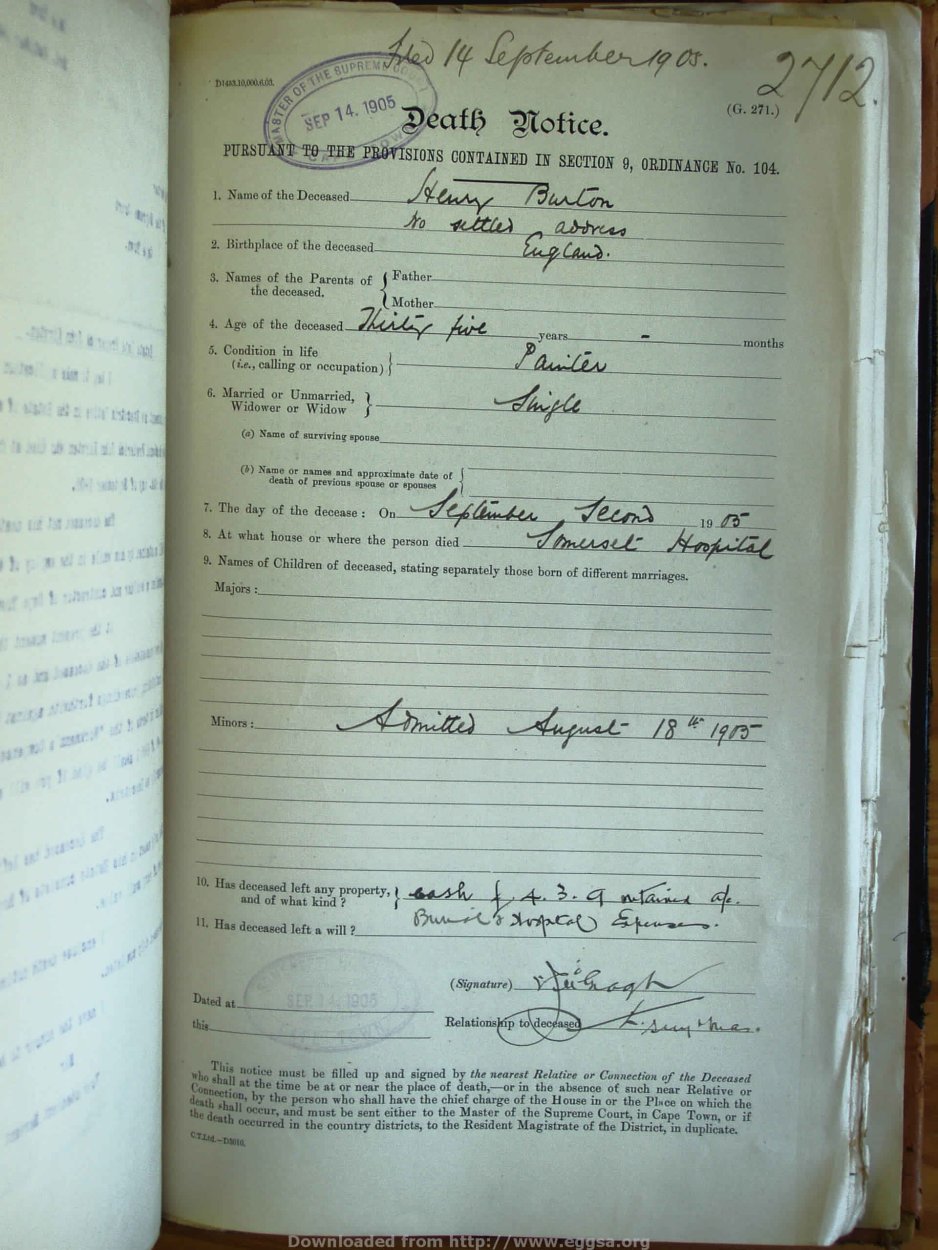 Filed 14 September 1905.
2712.
D1483.10,000.6.03.
MASTER OF THE SUPREME COURT
SEP 14. 1905
CAPE TOWN
(G. 271.)
Death Notice.
PURSUANT TO THE PROVISIONS CONTAINED IN SECTION 9, ORDINANCE No. 104.
1. Name of the Deceased Henry Burton
No settled address
2. Birthplace of the deceased England.
3. Names of the Parents of the deceased. { Father
Mother
4. Age of the deceased Thirty five years - months
5. Condition in life
(i.e., calling or occupation) } Painter
6. Married or Unmarried,
Widower or Widow } Single
(a) Name of surviving spouse
(b) Name or names and approximate date of
death of previous spouse or spouses
7. The day of the decease: On September Second 1905
8. At what house or where the person died Somerset Hospital
9. Names of Children of deceased, stating separately those born of different marriages.
Majors :
Minors : Admitted August 18th 1905
10. Has deceased left any property,
and of what kind ? } cash £ 4. 3. 9 retained a/c.
Burial & Hospital Expenses.
11. Has deceased left a will ?
(Signature)
Dated at SEP 14 1905
CAPE TOWN
this
Relationship to deceased
This notice must be filled up and signed by the nearest Relative or Connection of the Deceased
who shall at the time be at or near the place of death,—or in the absence of such near Relative or
Connection, by the person who shall have the chief charge of the House in or the Place on which the
death shall occur, and must be sent either to the Master of the Supreme Court, in Cape Town, or if
the death occurred in the country districts, to the Resident Magistrate of the District, in duplicate.
C.T.Ltd.—D3010.
Downloaded from http://www.eggsa.org